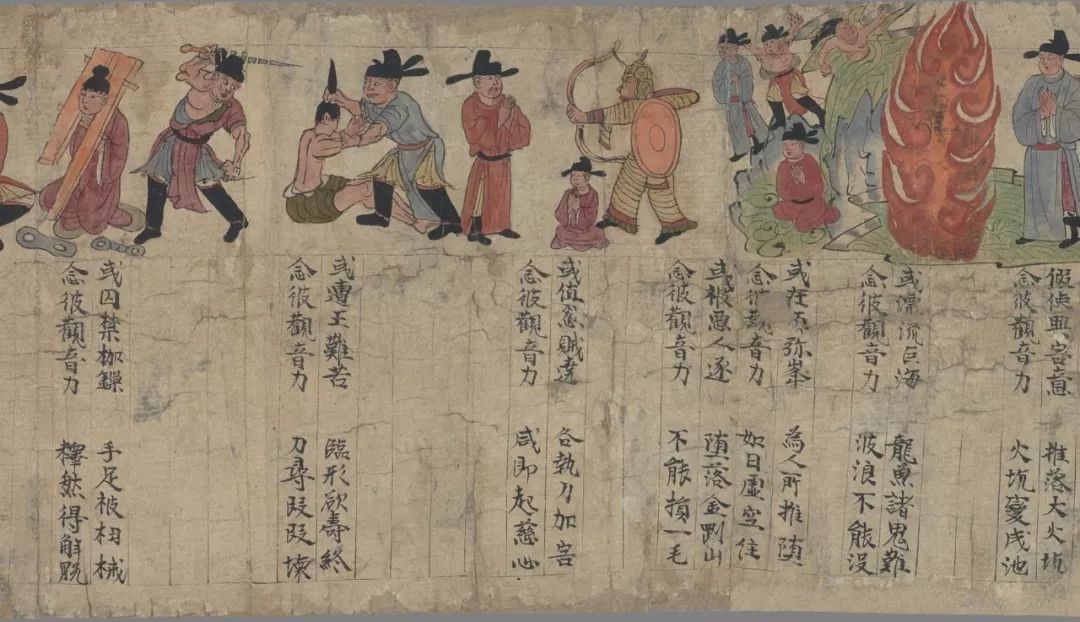 假使興害意 推落大火坑
念彼觀音力 火坑變成池
或漂流巨海 龍魚諸鬼難
念彼觀音力 波浪不能沒
或在須弥峯 為人所推堕
念彼觀音力 如日虚空住
或被悪人逐 堕落金剛山
念彼觀音力 不能損一毛
或值怨賊遶 各執刀加害
念彼觀音力 咸即起慈心
或遭王難苦 臨形欲壽終
念彼觀音力 刀尋段段壞
或囚禁枷鏁 手足被杻械
念彼觀音力 釋然得解脱